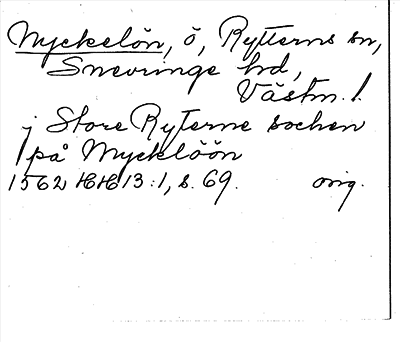 Myckelön, ö, Rytterns sn,
Snevringe hd,
Västm. l.
j Store Ryterne sochen
på Mycklöön
1562 HH 13:1, s. 69. orig.